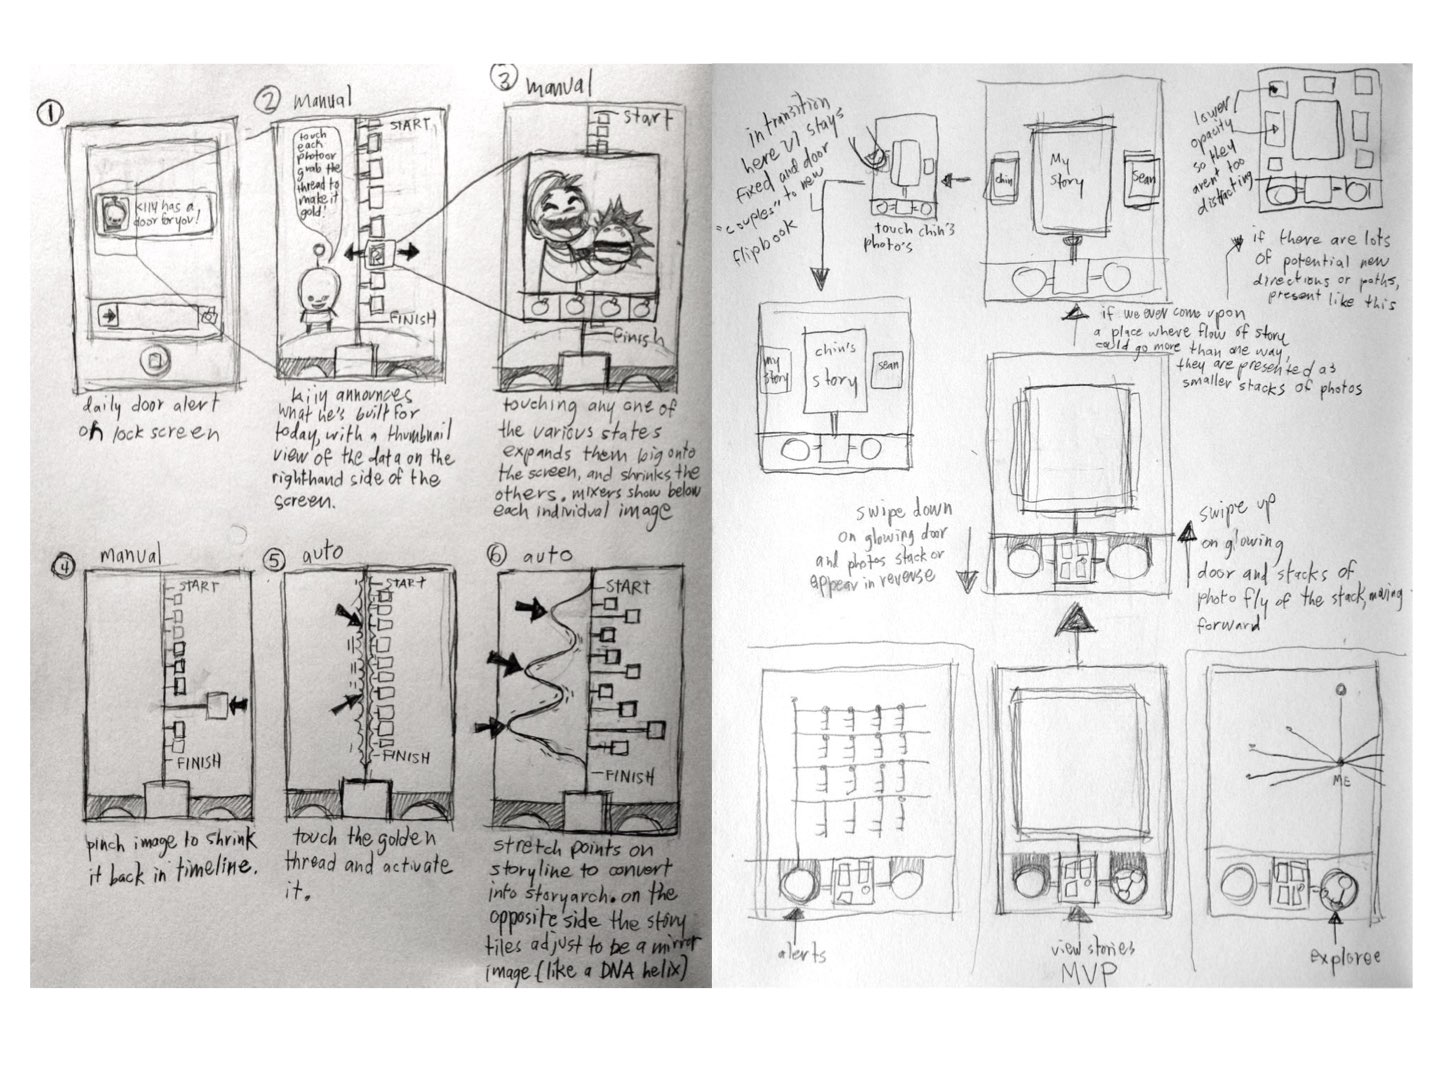 1
killy has a
door for you!
daily door alert
on lock screen
2
manual
touch
each
photo or
grab the
thread to
make it
gold!
START
FINISH
killy announces
what he's built for
today, with a thumbnail
view of the data on the
righthand side of the
screen.
3
manual
start
finish
touching any one of
the various states
expands them big onto
the screen, and shrinks the
others. mixers show below
each individual image
4
manual
START
FINISH
pinch image to shrink
it back in timeline.
5
auto
START
FINISH
touch the golden
thread and activate
it.
6
auto
START
FINISH
stretch points on
storyline to convert
into storyarch. on the
opposite side the story
tiles adjust to be a mirror
image (like a DNA helix)
in transition
here UI stays
fixed and door
"couples" to new
flipbook
touch chin's
photo's
chin
My
Story
sean
lower
opacity
so they
aren't too
distracting
if there are lots
of potential new
directions or paths,
present like this
if we ever come upon
a place where flow of story
could go more than one way,
they are presented as
smaller stacks of photos
my
story
chin's
story
sean
swipe down
on glowing door
and photos stack or
appear in reverse
swipe up
on glowing
door and stacks of
photo fly of the stack, moving
forward
alerts
view stories
MVP
ME
explore